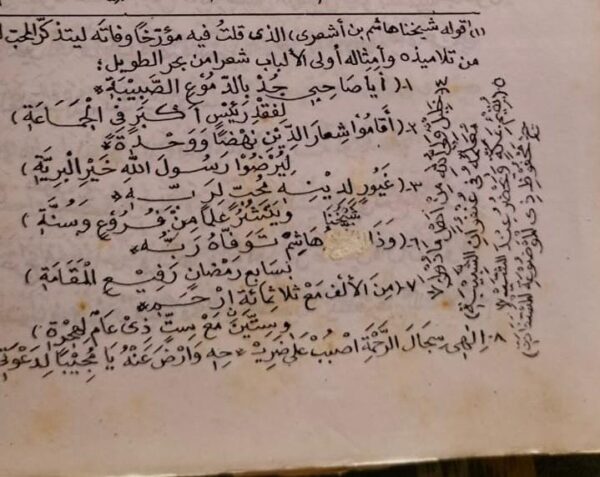 (١) قوله شيخنا هاشم بن أشعرى) الذى قلت فيه مؤرّخا وفاته ليتذكّر المحبّ
من تلاميذه وأمثاله أولى الألباب شعرا من بحر الطويل؛
١-( أَيَا صَاحِبِي جُدْ بِالدُّمُوعِ الصَّبِيبَةِ *
لِفَقْدِ رَئِيسٍ أَكْبَرَ فِي الْجَمَاعَةِ )
٢-( أَقَامُوا شِعَارَ الدِّيْنِ نَهْضًا وَوَحْدَةً *
لِيَرْضُوْا رَسُولَ اللّٰهِ خَيْرِ الْبَرِيَّةِ )
٣-( غَيُورٌ لِدِيْنِهِ مُحِبٌّ لِرَبِّهِ *
وَيَنْشُرُ عِلْمًا مِنْ فُرُوْعٍ وَسُنَّةٍ )
٦-( وَذَا شَيْخُنَا هَاشِمْ تَوَفَّاهُ رَبُّهُ *
بِسَابِعِ رَمَضَانٍ رَفِيعِ الْمَقَامَةِ )
٧-( مِنَ الْأَلْفِ مَعْ ثَلَاثِمِائَةٍ ارْحَمِهْ *
وَسِتِّيْنَ مَعْ سِتٍّ ذِيْ عَامٌ لِهِجْرَةِ )
٨-( اِلٰهِي سِجَالَ الرَّحْمَةِ اصْبُبْ عَلَى ضَرِيْ * حِهِ وَارْضَ عَنْهُ يَا مُجِيْبًا لِدَعْوَتِي